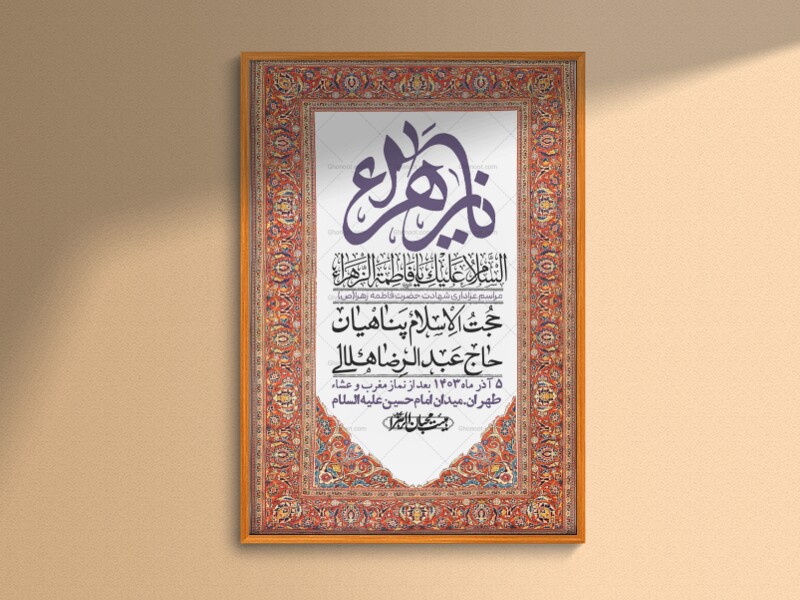 یا زهراء
السلام علیك یا فاطمة الزهراء
مراسم عزاداری شهادت حضرت فاطمه زهرا(ص)
حجت الاسلام پناهیان
حاج عبدالرضا هلالی
۵ آذر ماه ۱۴۰۳ بعد از نماز مغرب و عشاء
طهران.میدان امام حسین علیه السلام
هیئت محبان الزهرا